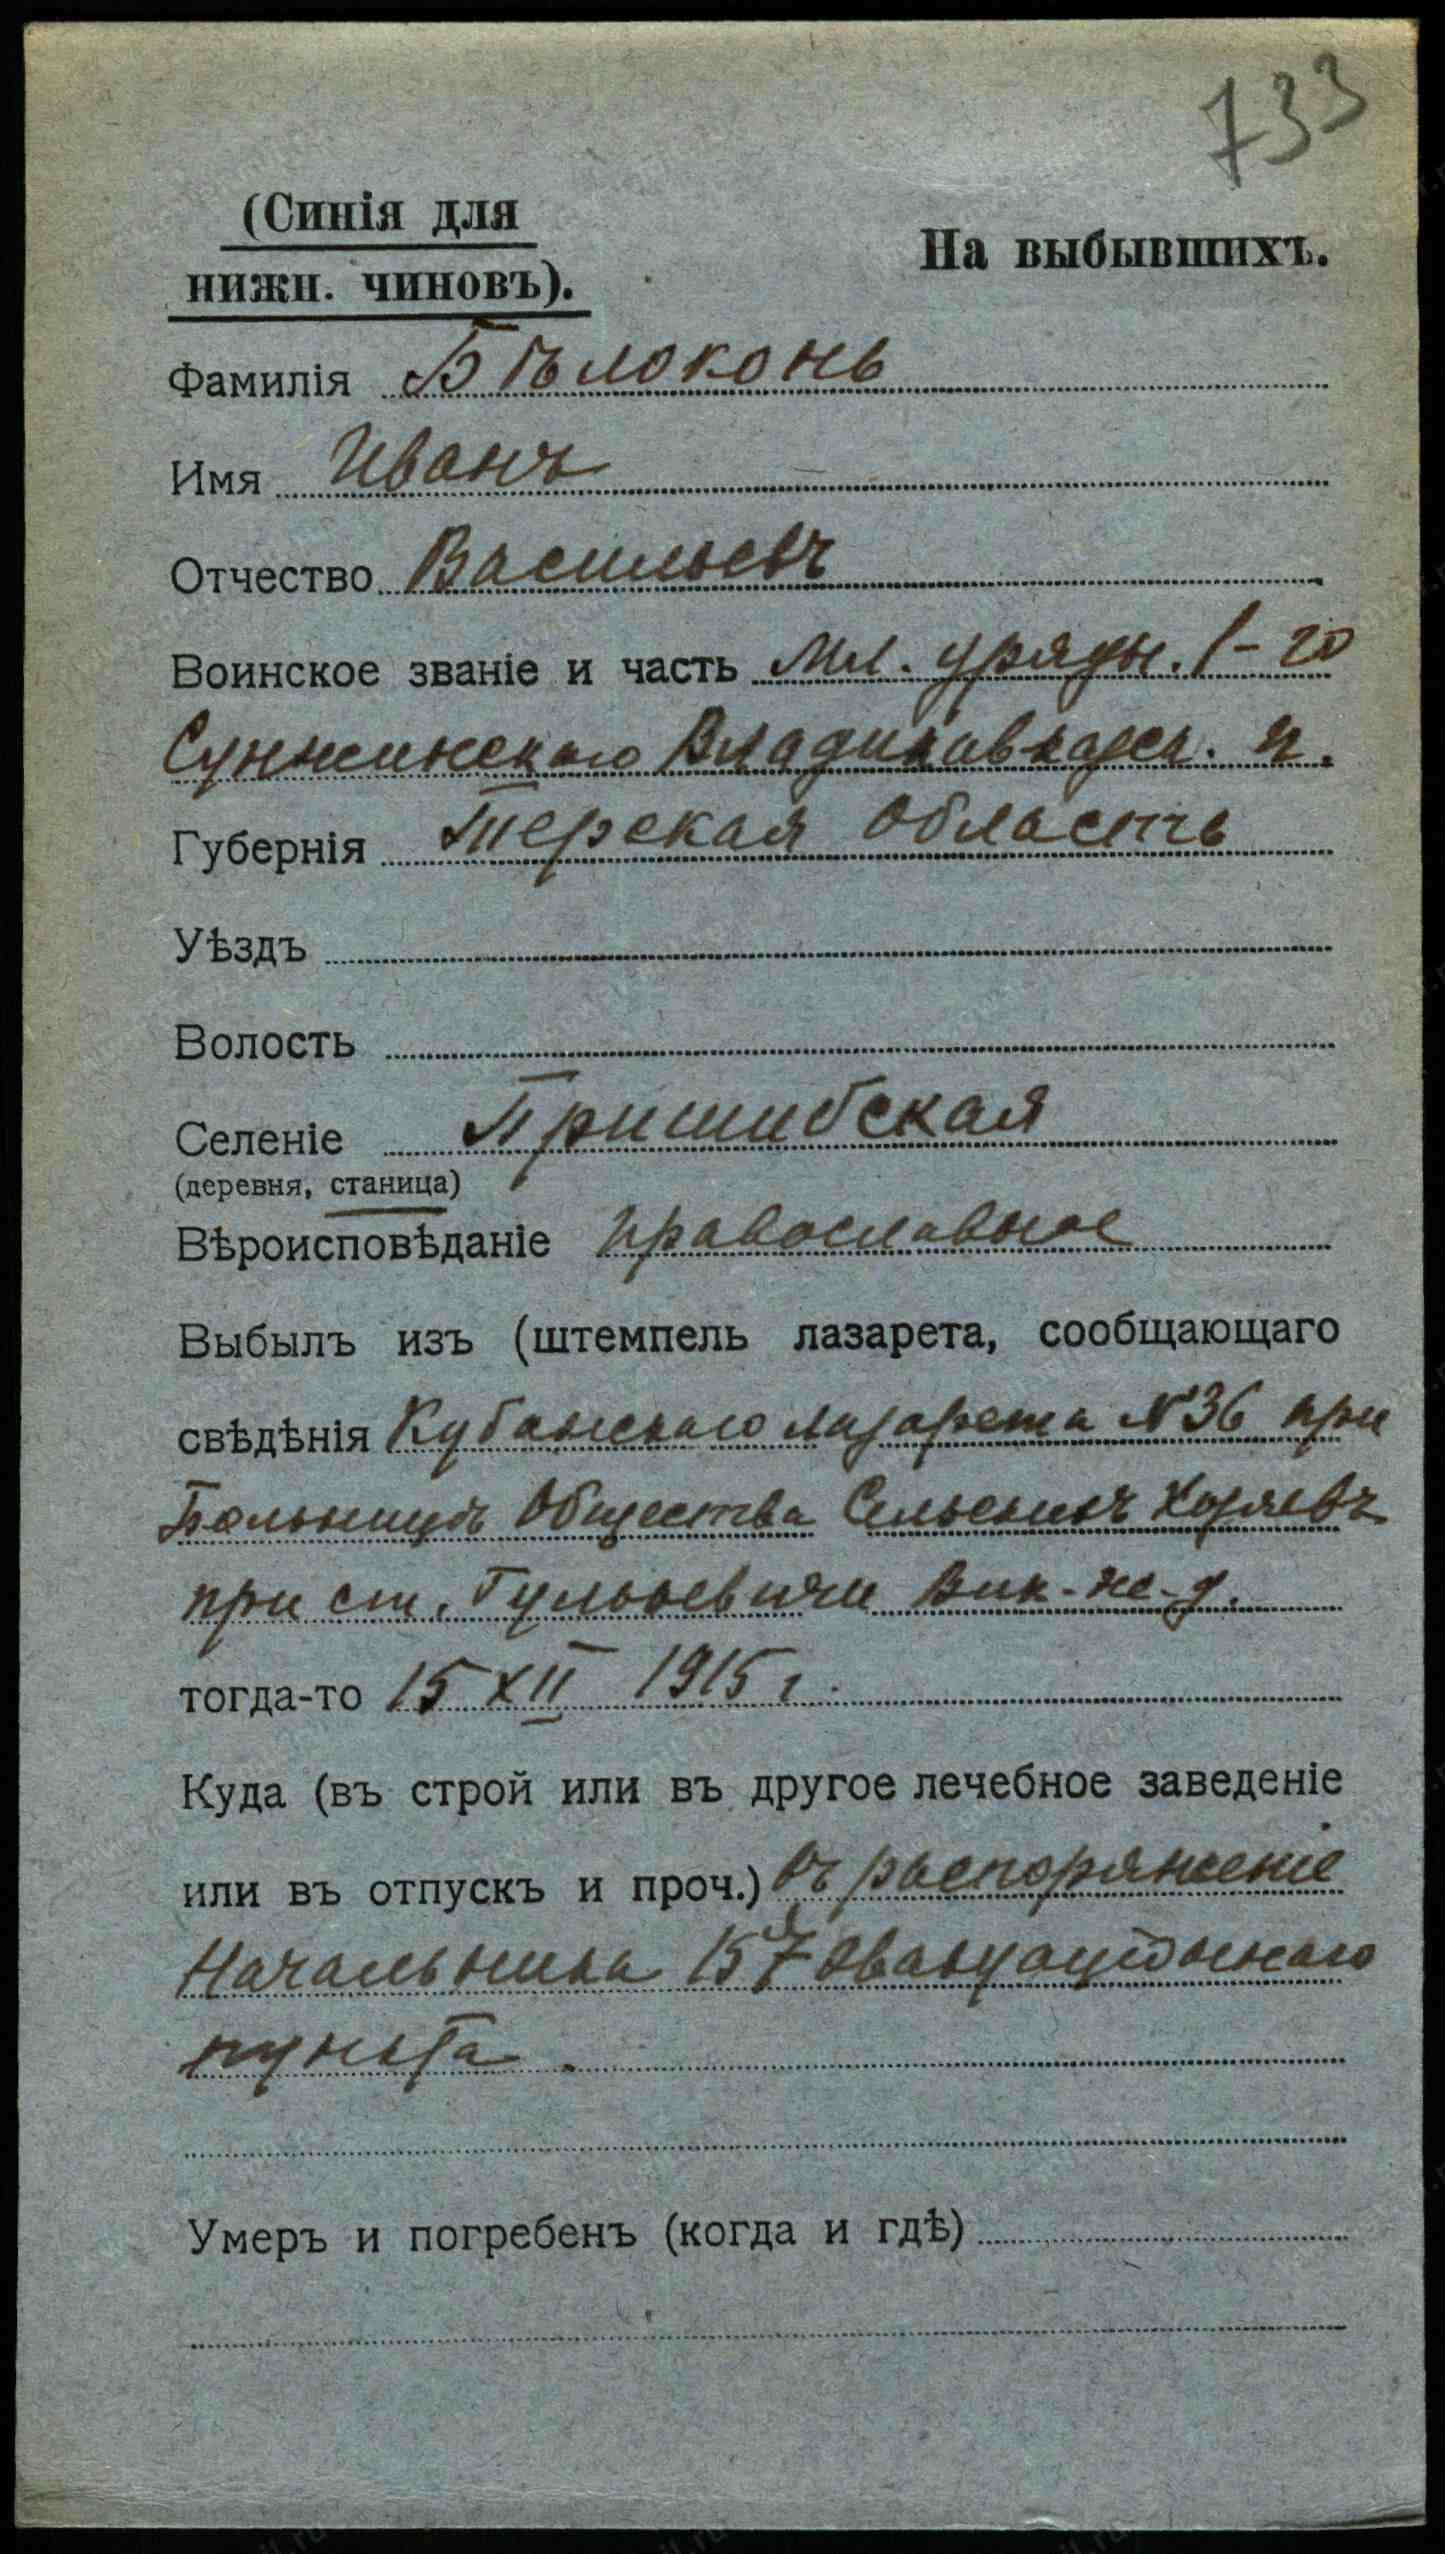 733
(Синія для
нижн. чиновъ).
На выбывшихъ.
Фамилія Бѣлоконь
Имя Иванъ
Отчество Васильевъ
Воинское званіе и часть Мл. урядн. 1-го
Сунжинскаго Владикавказск. п.
Губернія Терская Область
Уѣздъ
Волость
Селеніе Пришибская
(деревня, станица)
Вѣроисповѣданіе православное
Выбылъ изъ (штемпель лазарета, сообщающаго
свѣдѣнія Кубанскаго лазарета №36 при
Больницѣ Общества Сельскихъ Хозяевъ
при ст. Гулькевичи Влк-ж-д.
тогда-то 15 XII 1915 г.
Куда (въ строй или въ другое лечебное заведеніе
или въ отпускъ и проч.) въ распоряженіе
Начальника 157 Эвакуаціоннаго
пункта.
Умеръ и погребенъ (когда и гдѣ)